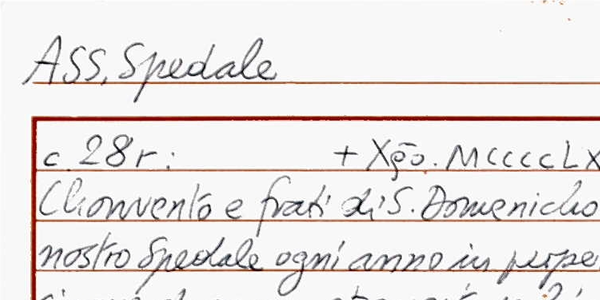 ASS, Spedale
c. 28r: + Xp̄o. MCCCCLX
Chonvento e frati di S. Domenicho
nostro Spedale ogni anno in perpe